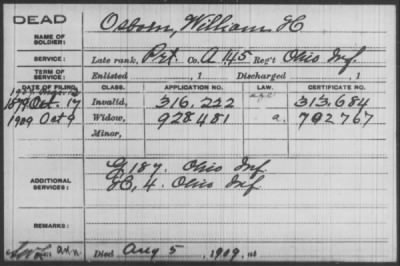 DEAD
Osborn, William H
NAME OF SOLDIER:
SERVICE: Late rank, Pvt. Co. A 145 Reg't Ohio Inf.
TERM OF SERVICE: Enlisted , 1 Discharged , 1
DATE OF FILING. CLASS. APPLICATION NO. LAW. CERTIFICATE NO.
1879 Oct. 17 Invalid, 316.222 313.684
1909 Oct 9 Widow, 928481 a. 702767
Minor,
ADDITIONAL SERVICES: G 187. Ohio Inf.
H, 4. Ohio Inf.
REMARKS:
Died Aug 5, 1909, at